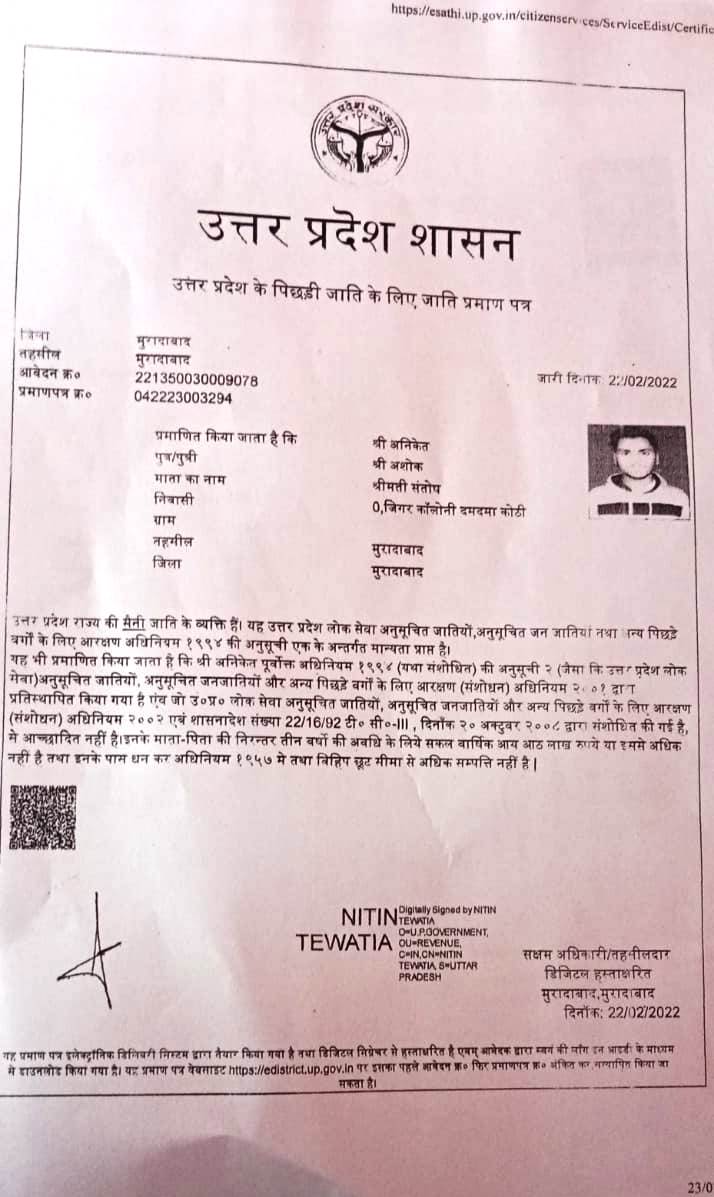 https://esathi.up.gov.in/citizenservices/ServiceEdist/Certific
उत्तर प्रदेश सरकार
उत्तर प्रदेश शासन
उत्तर प्रदेश के पिछड़ी जाति के लिए जाति प्रमाण पत्र
जिला मुरादाबाद
तहसील मुरादाबाद
आवेदन क्र० 221350030009078 जारी दिनांक: 22/02/2022
प्रमाणपत्र क्र० 042223003294
प्रमाणित किया जाता है कि श्री अनिकेत
पुत्र/पुत्री श्री अशोक
माता का नाम श्रीमती संतोष
निवासी 0,जिगर कॉलोनी दमदमा कोठी
ग्राम
तहसील मुरादाबाद
जिला मुरादाबाद
उत्तर प्रदेश राज्य की सैनी जाति के व्यक्ति हैं। यह उत्तर प्रदेश लोक सेवा अनुसूचित जातियों,अनुसूचित जन जातियां तथा अन्य पिछड़े
वर्गों के लिए आरक्षण अधिनियम १९९४ की अनुसूची एक के अन्तर्गत मान्यता प्राप्त है।
यह भी प्रमाणित किया जाता है कि श्री अनिकेत पूर्वोक्त अधिनियम १९९४ (यथा संशोधित) की अनुसूची २ (जैसा कि उत्तर प्रदेश लोक
सेवा)अनुसूचित जातियों, अनुसूचित जनजातियों और अन्य पिछड़े वर्गो के लिए आरक्षण (संशोधन) अधिनियम २००१ द्वारा
प्रतिस्थापित किया गया है एंव जो उ०प्र० लोक सेवा अनुसूचित जातियों, अनुसूचित जनजातियों और अन्य पिछड़े वर्गो के लिए आरक्षण
(संशोधन) अधिनियम २००२ एवं शासनादेश संख्या 22/16/92 टी० सी०-III , दिनाँक २० अक्टुबर २००८ द्वारा संशोधित की गई है,
से आच्छादित नहीं है।इनके माता-पिता की निरन्तर तीन वर्षो की अवधि के लिये सकल वार्षिक आय आठ लाख रुपये या इससे अधिक
नहीं है तथा इनके पास धन कर अधिनियम १९५७ मे तथा विहिप छूट सीमा से अधिक सम्पत्ति नहीं है |
NITIN
TEWATIA
Digitally Signed by NITIN
TEWATIA
O=U.P.GOVERNMENT,
OU=REVENUE,
C=IN,CN=NITIN
TEWATIA, S=UTTAR
PRADESH
सक्षम अधिकारी/तहसीलदार
डिजिटल हस्ताक्षरित
मुरादाबाद,मुरादाबाद
दिनाँक: 22/02/2022
यह प्रमाण पत्र इलेक्ट्रॉनिक डिलिवरी सिस्टम द्वारा तैयार किया गया है तथा डिजिटल सिग्नेचर से हस्ताक्षरित है एवम् आवेदक द्वारा स्वयं की लॉग इन आइडी के माध्यम
से डाउनलोड किया गया है। यह प्रमाण पत्र वेबसाइट https://edistrict.up.gov.in पर इसका पहले आवेदन क्र० फिर प्रमाणपत्र क्र० अंकित कर,सत्यापित किया जा
सकता है।
23/0